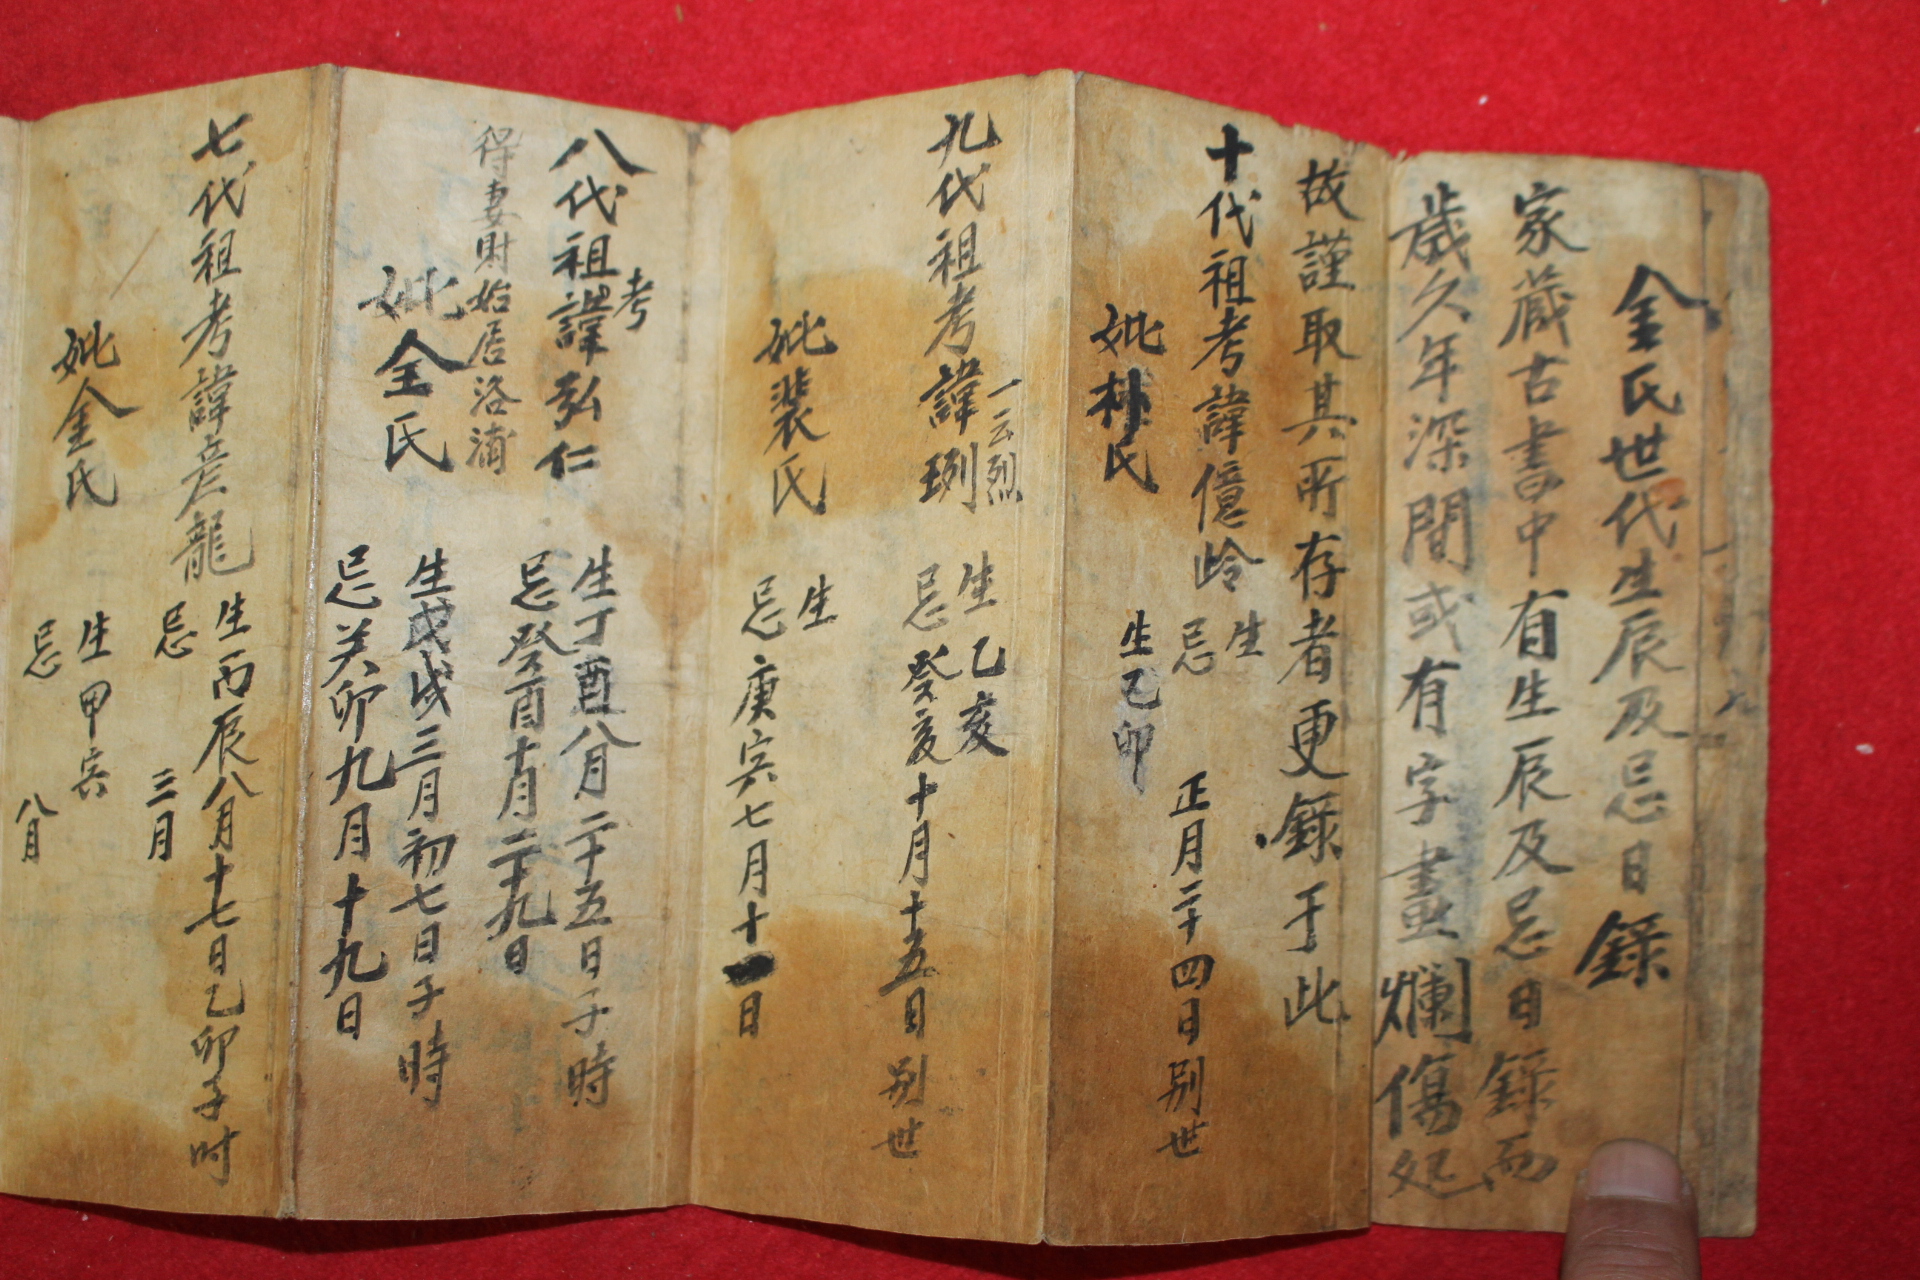 金氏世代生辰及忌日錄
家藏古書中有生辰及忌日錄而
歲久年深間或有字畫爛傷処
故謹取其所存者更錄于此
十代祖考諱億岭
生
忌 正月二十四日別世
妣朴氏
生乙卯
九代祖考諱琍
一云烈
生乙亥
忌癸亥十月十五日別世
妣裴氏
生
忌庚寅七月十一日
八代祖考諱弘仁
生丁酉八月二十五日子時
忌癸酉十月二十九日
得妻財始居洛浦
妣金氏
生戊戌三月初七日子時
忌癸卯九月十九日
七代祖考諱彦龍
生丙辰八月十七日乙卯子时
忌 三月
妣金氏
生甲寅
忌 八月